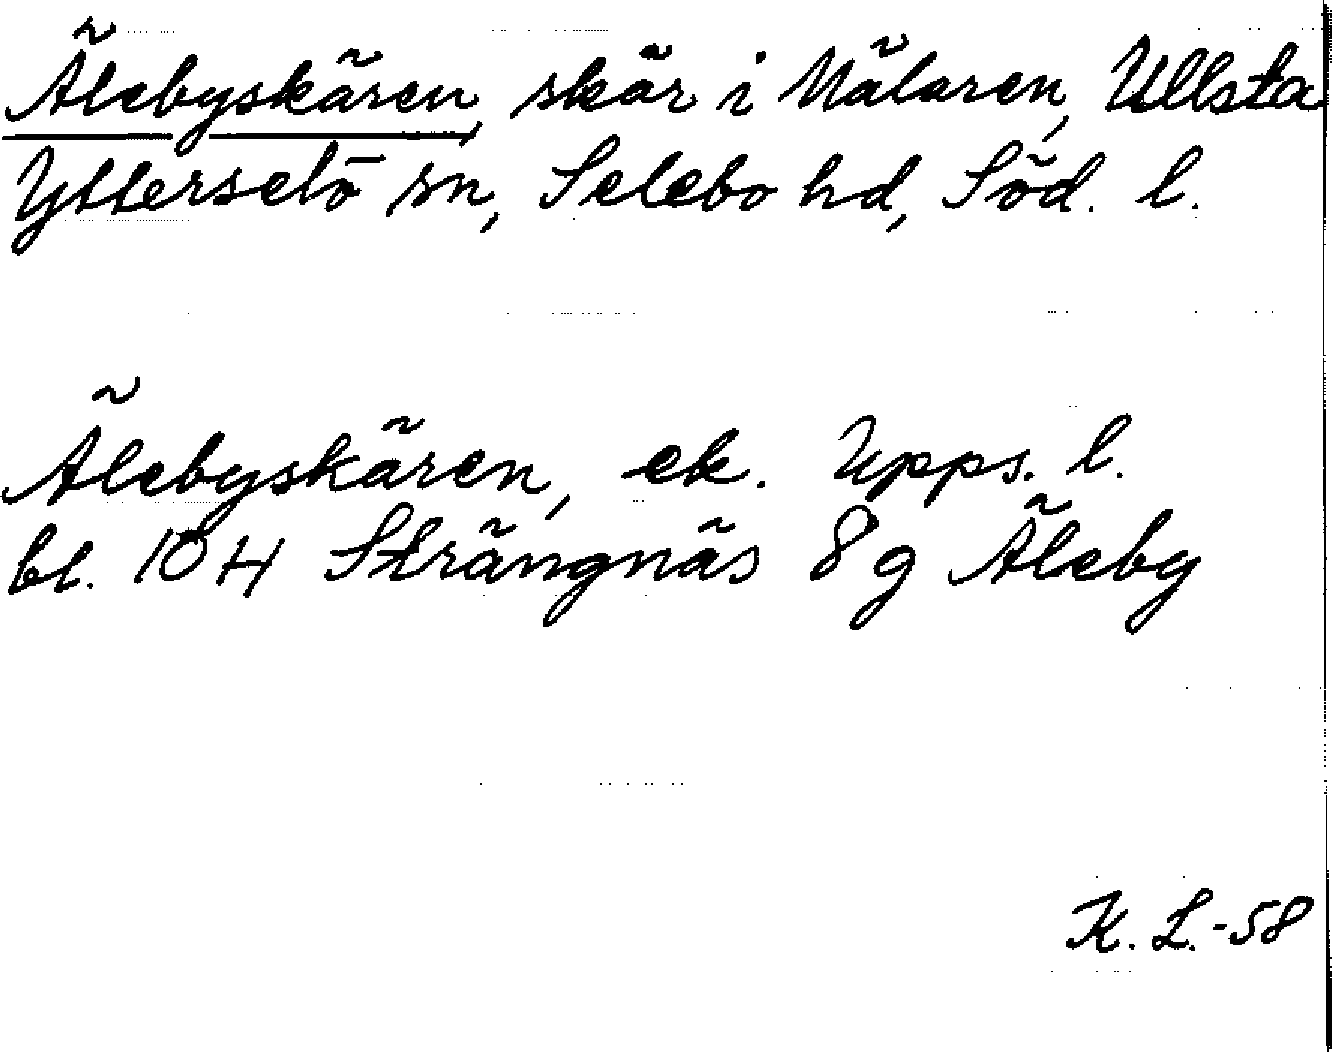 Älebyskären, skär i Mälaren, Ullsta
Ytterselö sn, Selebo hd, Söd. l.
Älebyskären, ek. Upps. l.
bl. 10 H Strängnäs 8 g Äleby
K. L.-58